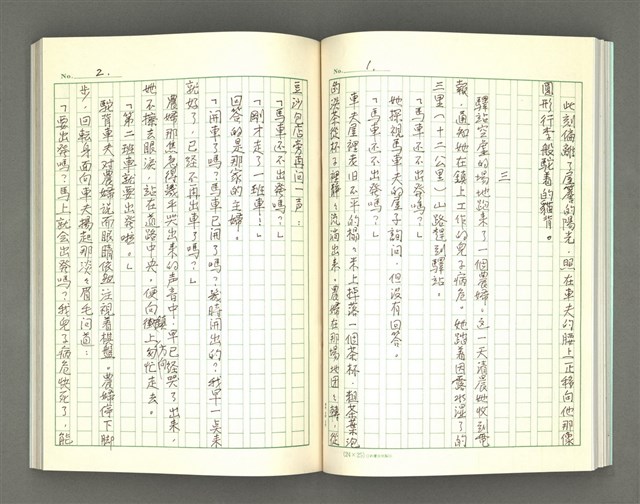 No. 1.
此刻偏離了屋簷的陽光，照在車夫的腰上一正移向他那像
圓形行李般駝着的貓背。
三
驛站空虛的場地跑來了一個農婦。這一天清晨她收到電
報，通知她在鎮上工作的兒子病危。她踏着因露水濕了的
三里（十二公里）山路趕到驛站。
「馬車還不出發嗎？」
她探視馬車夫的屋子詢問，但沒有回答。
「馬車還不出發嗎？」
車夫屋裡老旧不平的榻榻米上掉落一個茶杯，粗茶葉泡
的淡茶從杯子裡靜靜流滴出来。農婦在那場地団團轉，從
No. 2.
豆沙包店旁再问一声：
「馬車还不出発嗎？」
「剛才走了一班車！」
回答的是那家的主婦。
「開車了嗎？馬車已開了嗎？幾時開出的？我早一点来
就好了，已經不再出車了嗎？」
農婦那焦急得幾乎哭出来的声音中，早已經哭了出来。
她不擦去眼淚，站在道路中央，便向鎮上方向匆忙走去。
「第二班車就要出発啦。」
駝背車夫对農婦説而眼睛依然注視着棋盤。農婦停下脚
步，回転身面向車夫揚起那淡淡眉毛问道：
「要出発嗎？馬上就会出発嗎？我兒子病危快死了，能